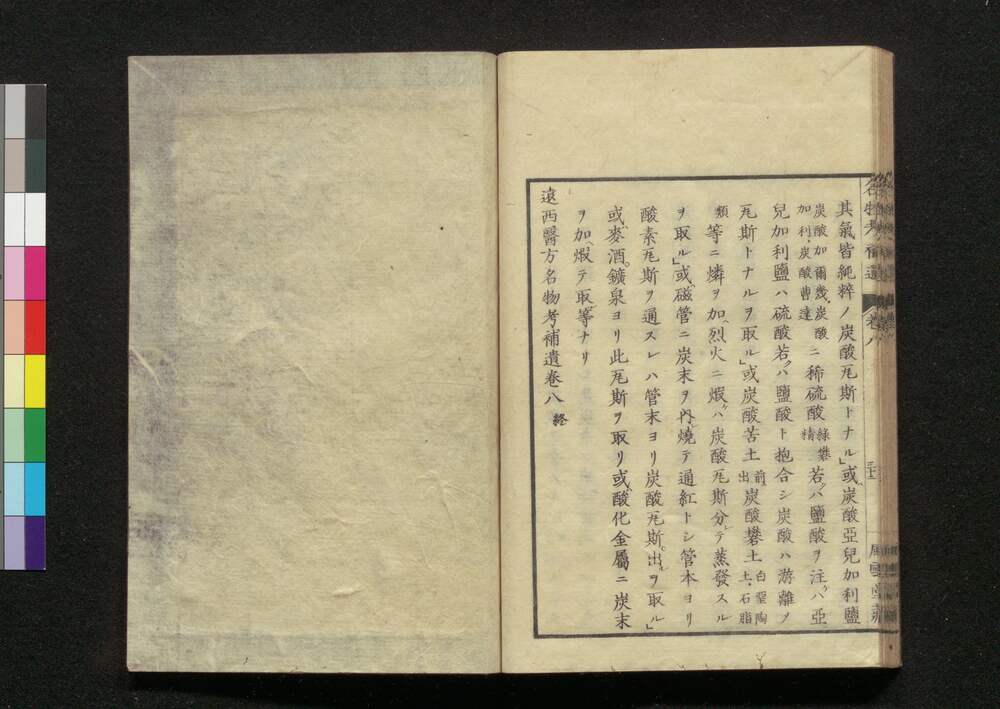 其氣皆純粹ノ炭酸瓦斯トナル」或ハ炭酸亞兒加利鹽
炭酸加爾幾、炭酸
加利、炭酸曹達
ニ稀硫酸
綠礬
精
若クハ鹽酸ヲ注ケハ亞
兒加利鹽ハ硫酸若クハ鹽酸ト抱合シ炭酸ハ游離ノ
瓦斯トナルヲ取ル」或炭酸苦土
前
出
炭酸礬土
白堊陶
土、石脂
類
等ニ燐ヲ加烈火ニ煆ケハ炭酸瓦斯分レテ蒸發スル
ヲ取ル」或ハ磁管ニ炭末ヲ内レ燒テ通紅トシ管本ヨリ
酸素瓦斯ヲ通スレハ管末ヨリ炭酸瓦斯出ルヲ取ル」
或ハ麥酒、鑛泉ヨリ此瓦斯ヲ取リ或ハ酸化金屬ニ炭末
ヲ加ヘ煆テ取ル等ナリ
遠西醫方名物考補遺卷八 終
名物考補遺 卷八